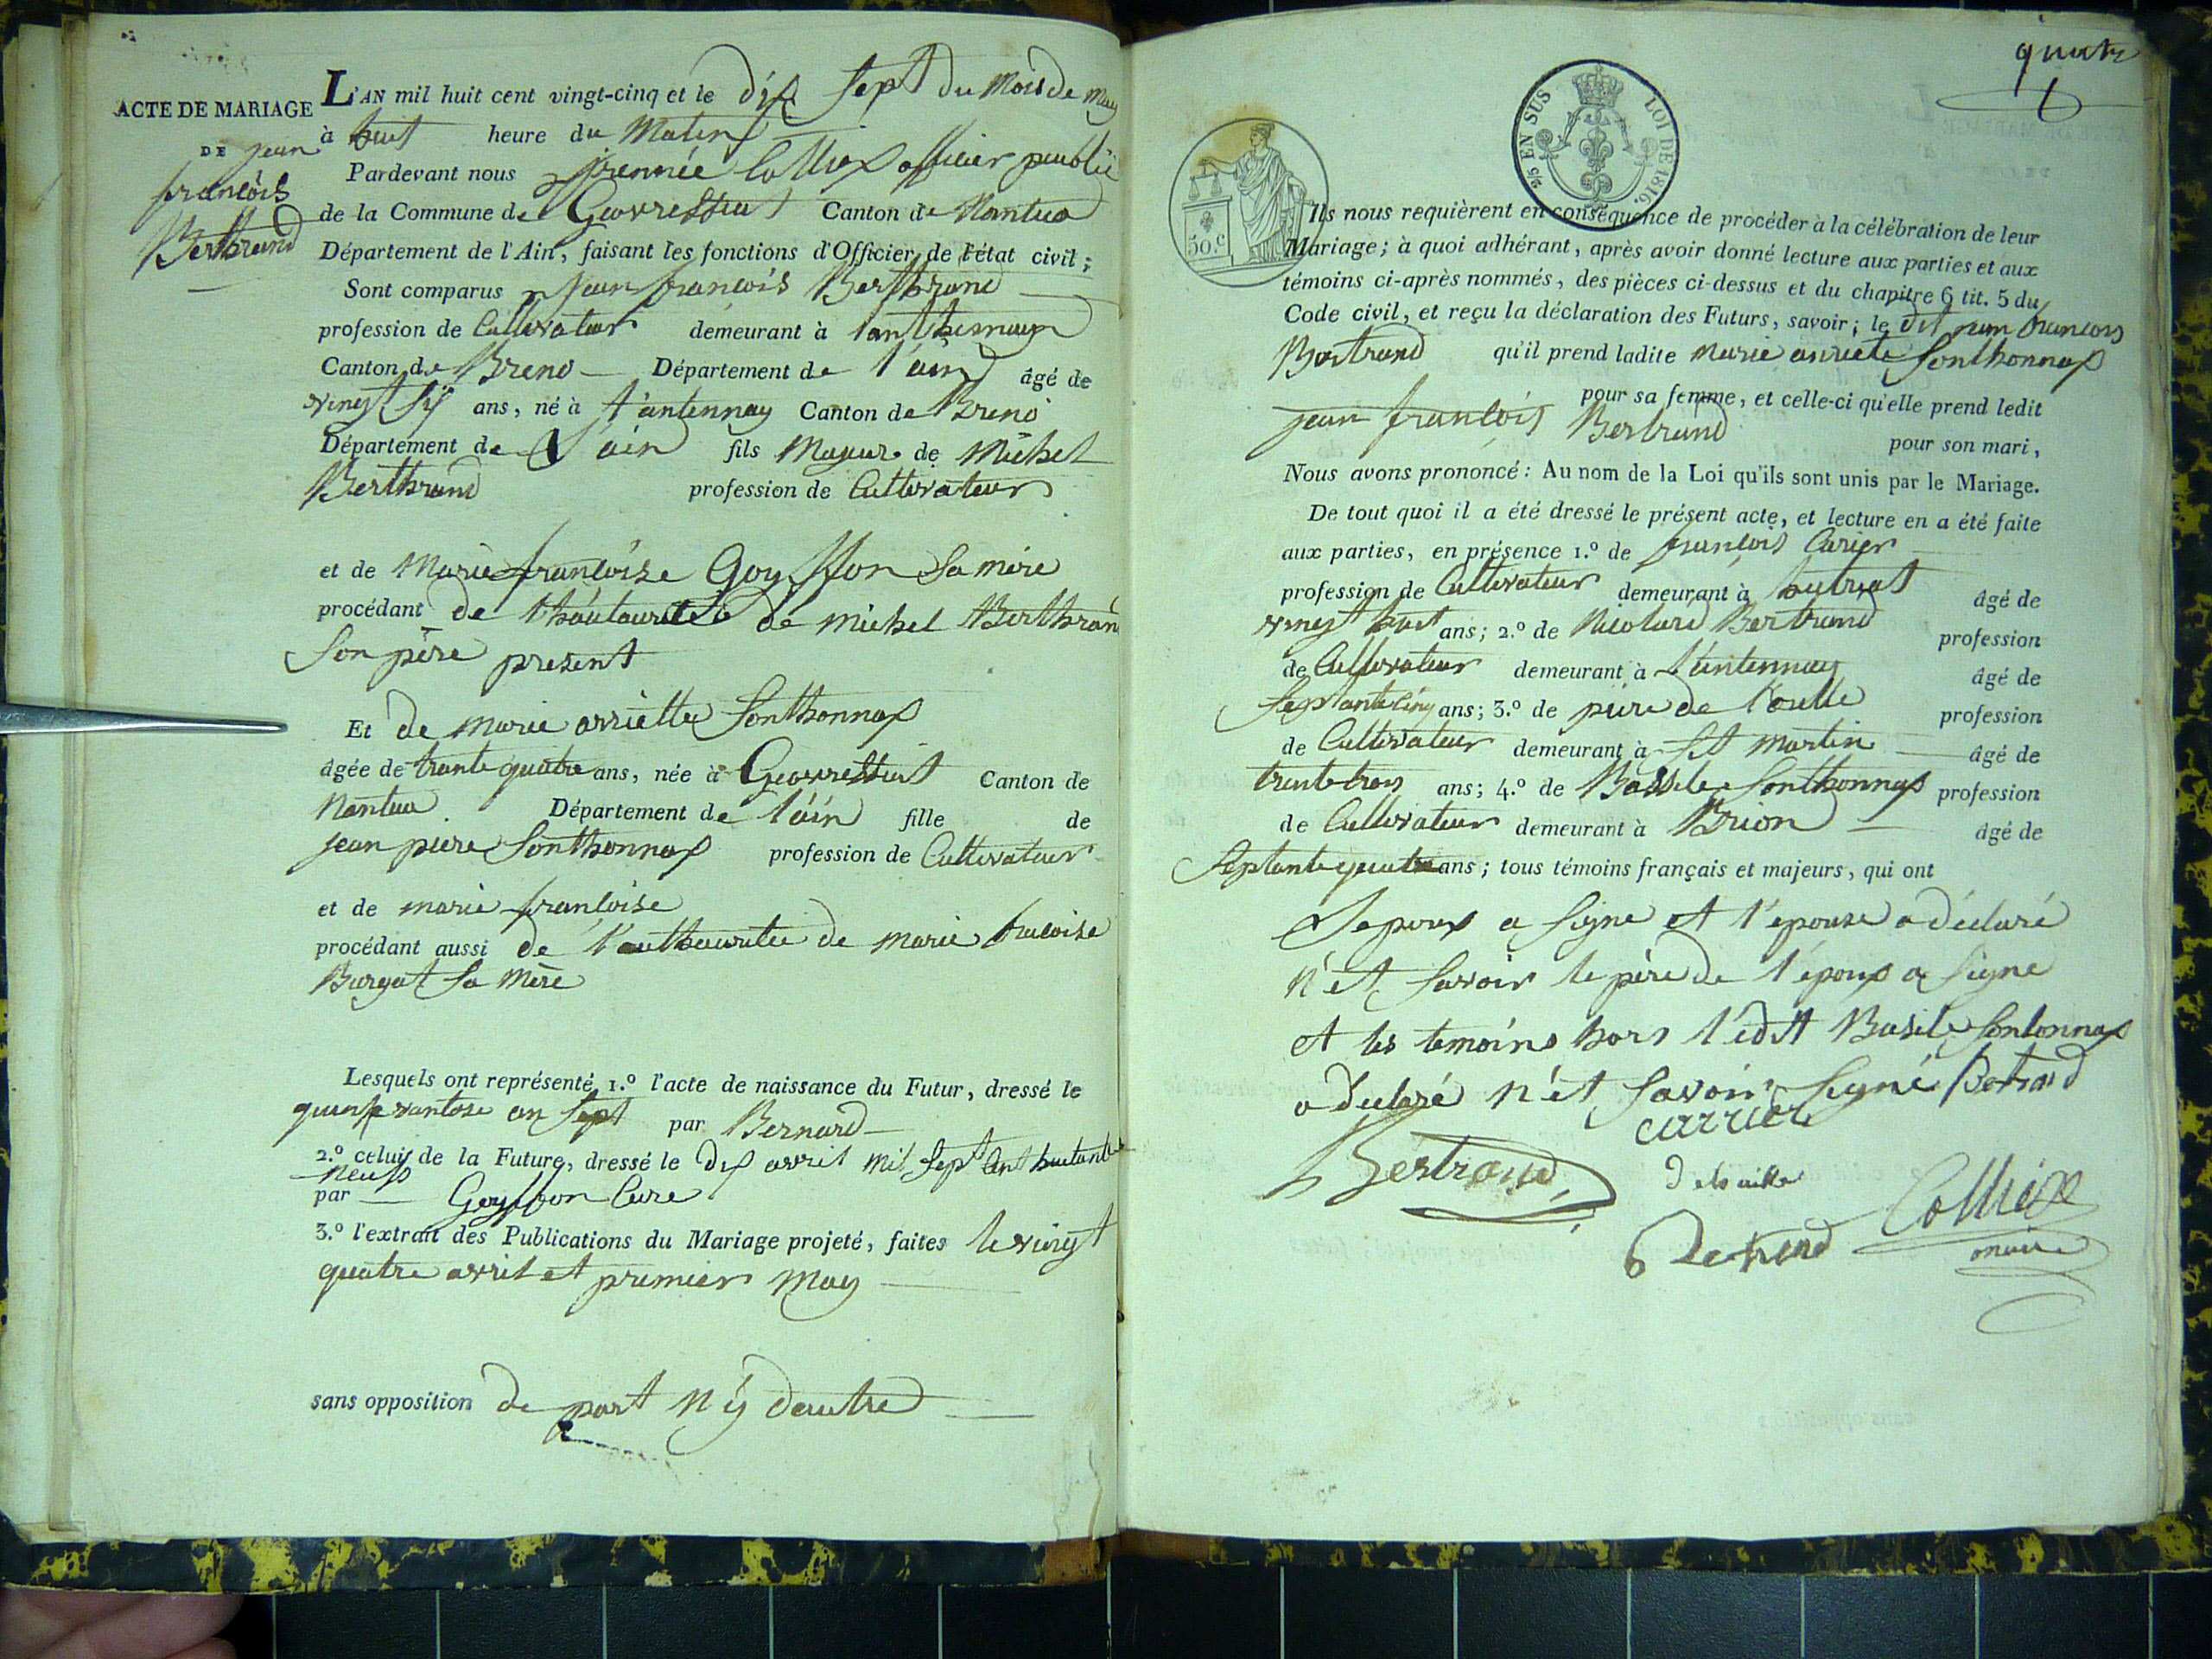 ACTE DE MARIAGE
DE jean
francois
Berthrand
L'AN mil huit cent vingt-cinq et le dix sept du mois de may
à huit heure du Matin
Pardevant nous Colliex officier public
de la Commune de Geovressiat Canton de Nantua
Département de l'Ain, faisant les fonctions d'Officier de l'état civil;
Sont comparus jean francois Berthrand
profession de Cultivateur demeurant à
Canton de Breno Département de l'ain âgé de
vingt six ans, né à t'antennay Canton de Breno
Département de l'ain fils Majeur de Michel
Berthrand profession de Cultivateur
et de Marie francoise Goyffon sa mère
procédant de de michel Berthrand
son père present
Et de marie arriette Sonthonnax
âgée de trante quatre ans, née à Geovressiat Canton de
Nantua Département de l'ain fille de
jean piere Sonthonnax profession de Cultivateur
et de marie françoise
procédant aussi de l'authauritée de marie fracoise
Burgat sa mère
Lesquels ont représenté 1.º l'acte de naissance du Futur, dressé le
quinze vantose an sept par Bernard
2.º celuy de la Future, dressé le dix avril mil sept cent huitante
neuf
par Goyffon Cure
3.º l'extrait des Publications du Mariage projeté, faites le vingt
quatre avril et premier may
sans opposition de part n'y dautre
quatr
2/5 EN SUS LOI DE 1816.
50.c
Ils nous requièrent en conséquence de procéder à la célébration de leur
Mariage; à quoi adhérant, après avoir donné lecture aux parties et aux
témoins ci-après nommés, des pièces ci-dessus et du chapitre 6 tit. 5 du
Code civil, et reçu la déclaration des Futurs, savoir; le dit jean francois
Bertrand qu'il prend ladite marie anriete Sonthonnax
pour sa femme, et celle-ci qu'elle prend ledit
jean francois Bertrand pour son mari,
Nous avons prononcé: Au nom de la Loi qu'ils sont unis par le Mariage.
De tout quoi il a été dressé le présent acte, et lecture en a été faite
aux parties, en présence 1.º de françois Carier
profession de Cultivateur demeurant à hutriat âgé de
vingt huit ans; 2.º de Nicolard Bertrand profession
de Cultivateur demeurant à t'antennay âgé de
septante cinq ans; 3.º de piere de profession
de Cultivateur demeurant à St martin âgé de
trante trois ans; 4.º de Bassile Sonthonnax profession
de Cultivateur demeurant à Brion âgé de
septante quatre ans; tous témoins français et majeurs, qui ont
Lepoux a signe et l'epouse a déclaré
n'et savoir le père de l'époux a signe
et les temoins hors l'edit Basile Sontonnax
a déclaré n'et savoir signé Bertrand
carrier
Bertrand
Colliex
maire
Bertrand